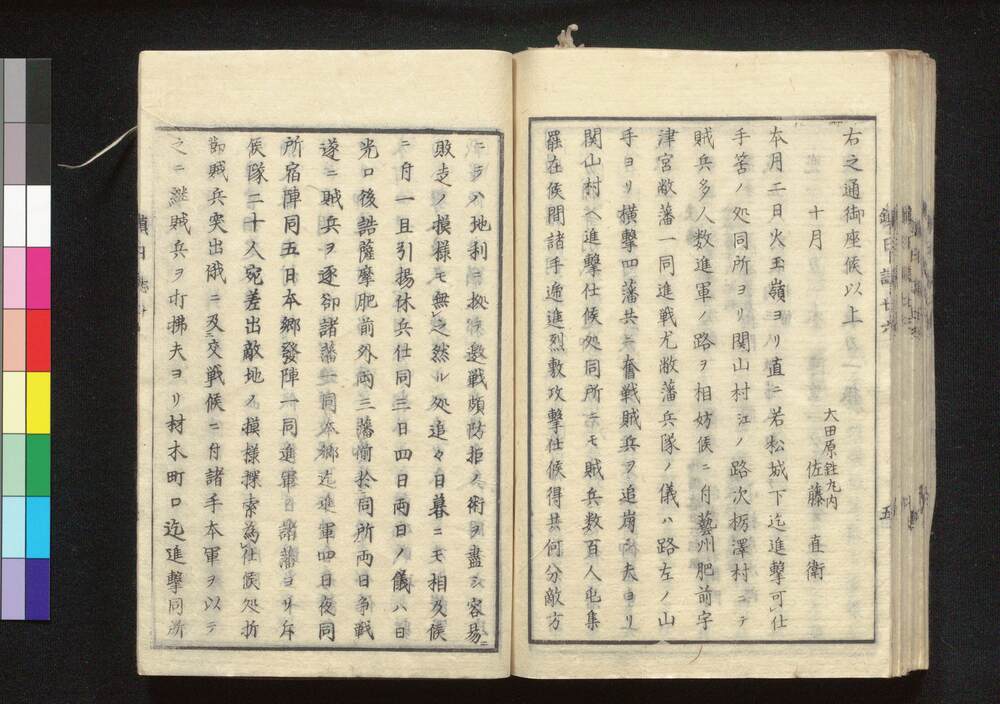 鎮日誌十六
五
右之通御座候以上
十月
大田原鉎丸内
佐藤直衛
本月二日火玉嶺ヨリ直ニ若松城下迄進撃可仕
手筈ノ処同所ヨリ関山村江ノ路次栃澤村ニテ
賊兵多人数進軍ノ路ヲ相妨候ニ付藝州肥前宇
津宮敝藩一同進戦尤敝藩兵隊ノ儀ハ路左ノ山
手ヨリ横撃四藩共ニ奮戦賊兵ヲ追崩シ夫ヨリ
関山村ヘ進撃仕候処同所ニモ賊兵数百人屯集
罷在候間諸手逓進烈敷攻撃仕候得共何分敵方
ニテハ地利ニ拠候邀戦頗防拒ノ術ヲ盡シ容易ニ
敗走ノ模様モ無之然ル処追々日暮ニモ相及候
ニ付一且引揚休兵仕同三日四日両日ノ儀ハ日
光口後詰薩摩肥前外両三藩懰於同所両日争戦
遂ニ賊兵ヲ逐卻諸藩一同本郷迄進軍四日夜同
所宿陣同五日本郷發陣一同進軍日諸藩ヨリ斥
候隊二十人宛差出敵地ノ模様探索為仕候処折
節賊兵突出俄ニ及交戦候ニ付諸手本軍ヲ以テ
之ニ継賊兵ヲ打拂夫ヨリ材木町口迄進撃同所